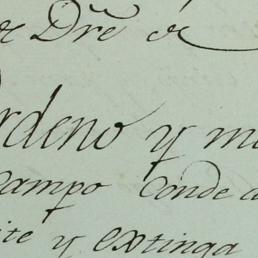 Dře de
rdeno y m
Campo Conde d
ite y extinga